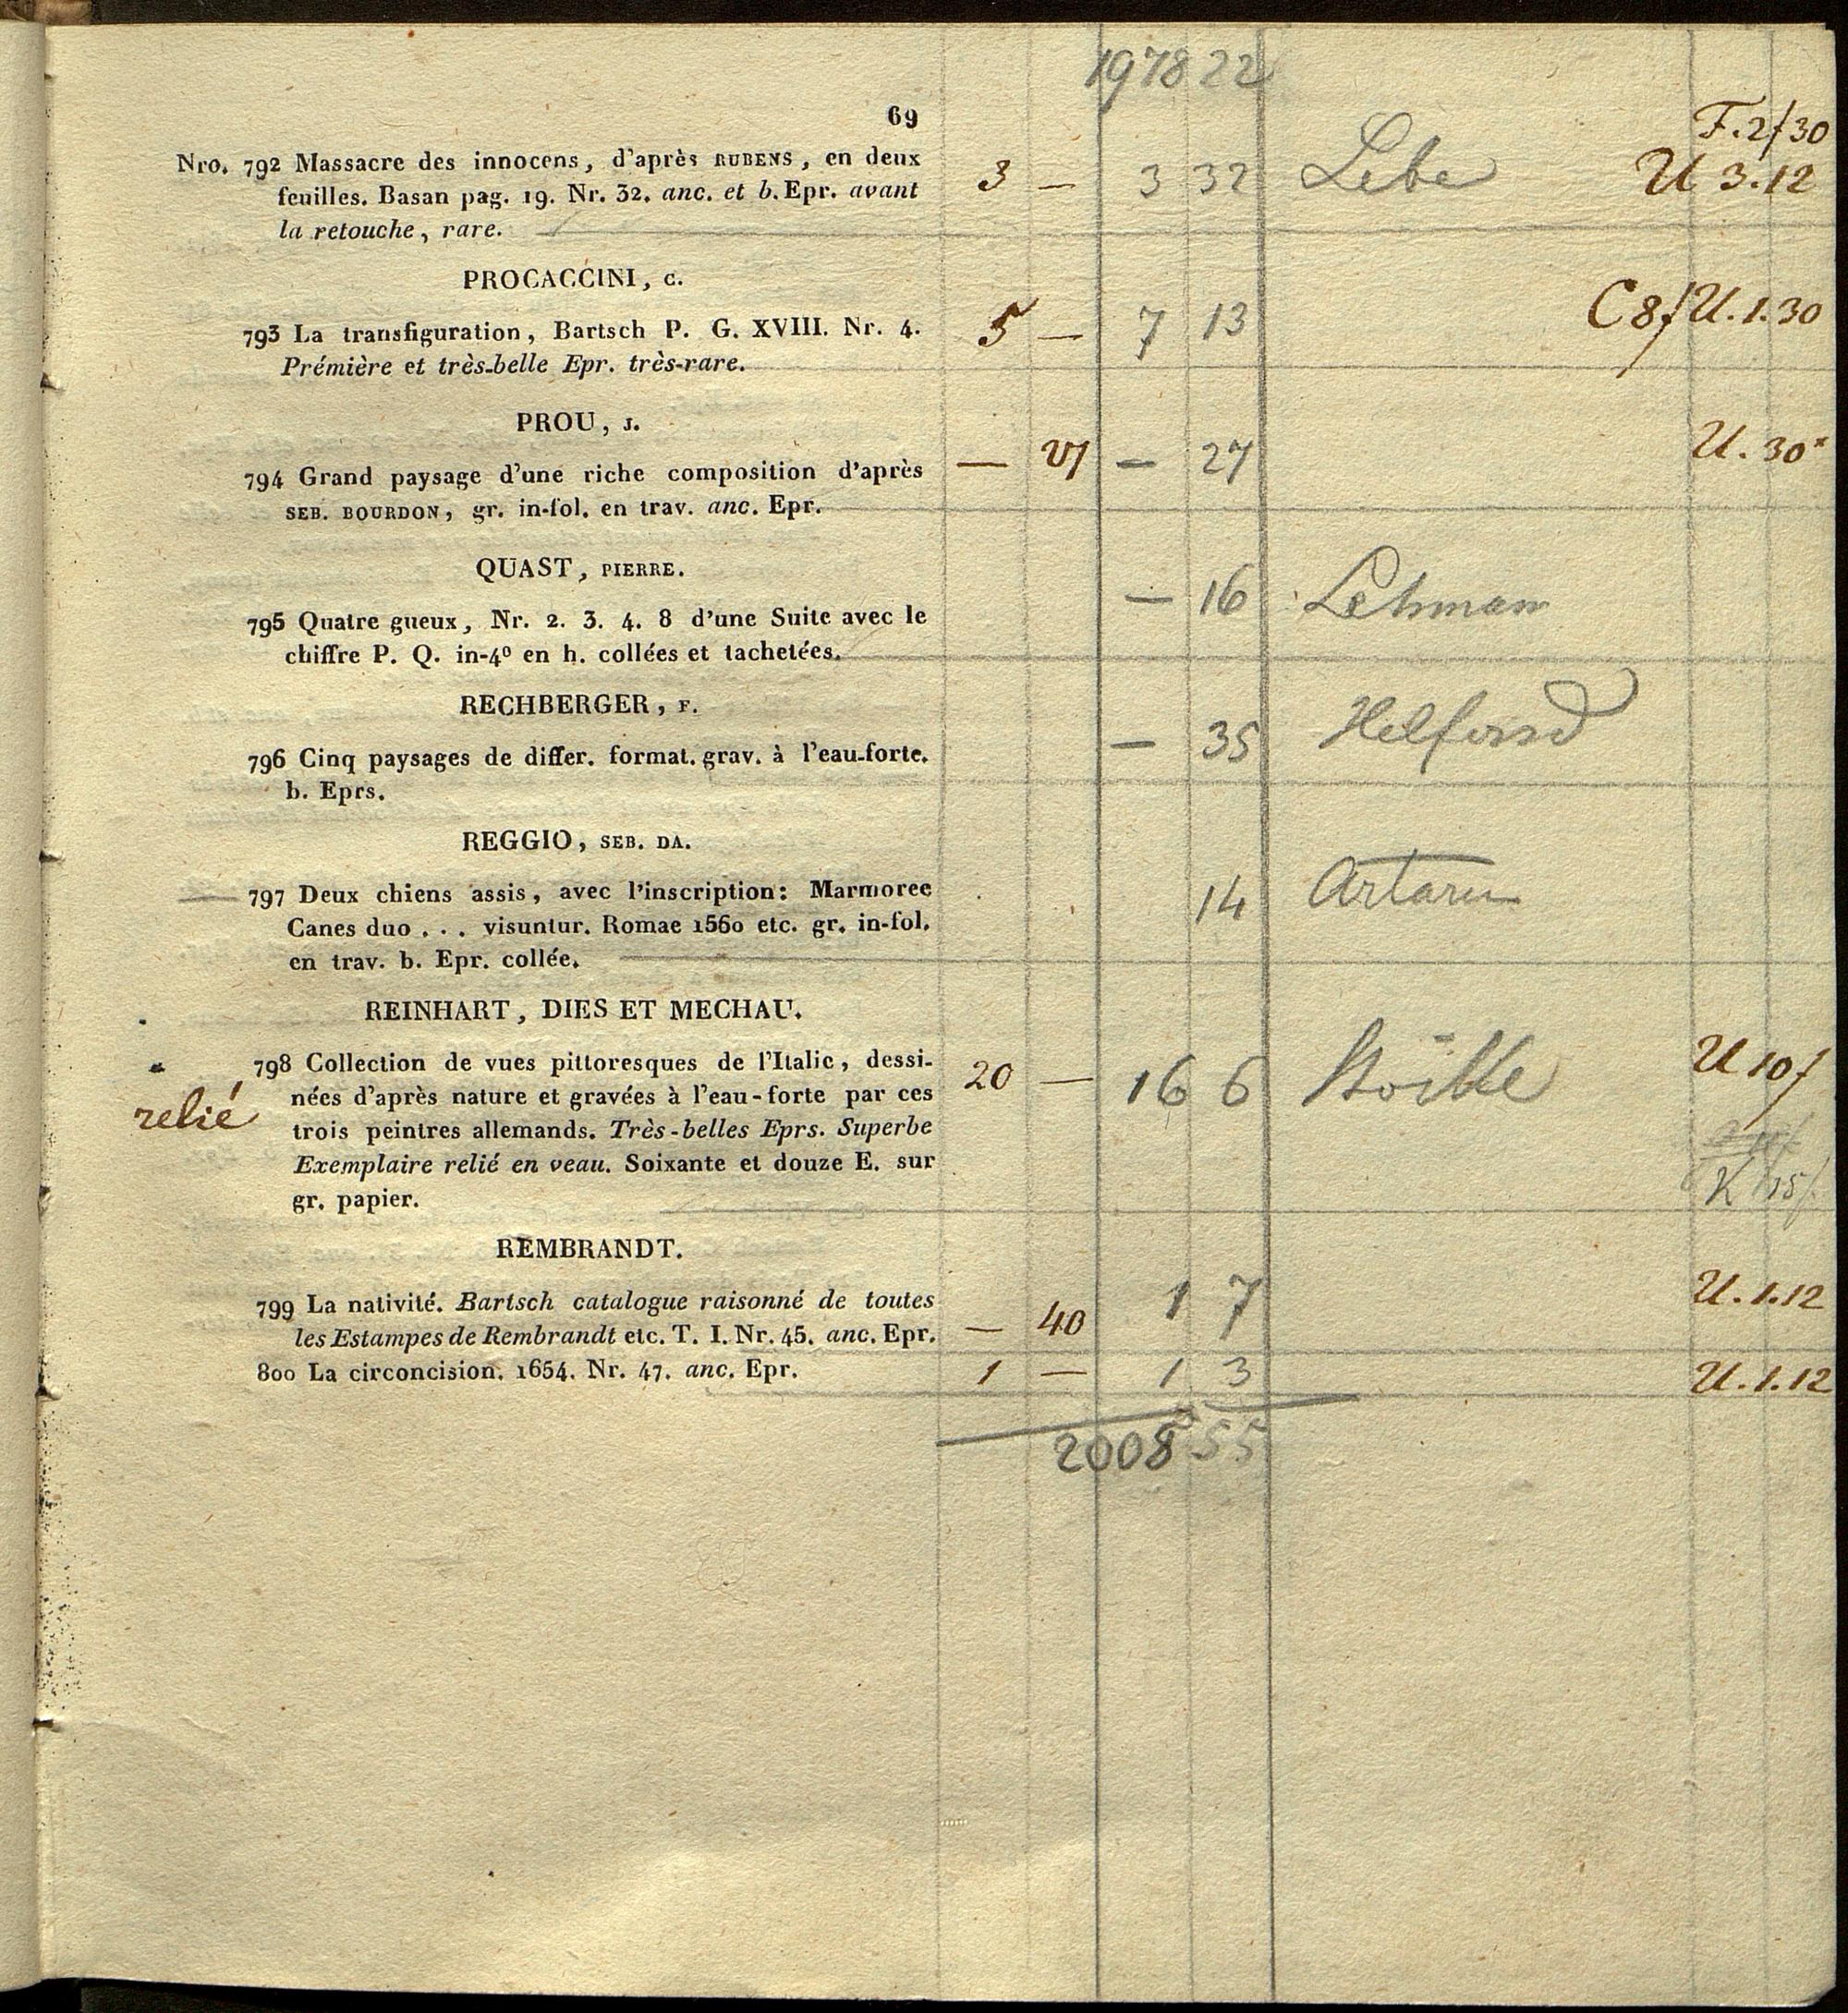 1978 22
69
F. 2f30
Nro. 792 Massacre des innocens, d'après RUBENS, en deux 3 — 3 32 Lebe U 3.12
feuilles. Basan pag. 19. Nr. 32. anc. et b. Epr. avant
la retouche, rare.
PROCACCINI, C.
793 La transfiguration, Bartsch P. G. XVIII. Nr. 4. 5 — 7 13 C 8f U. 1.30
Prémière et très-belle Epr. très-rare.
PROU, J.
794 Grand paysage d'une riche composition d'après — 27 — 27 U. 30x
SEB. BOURDON, gr. in-fol. en trav. anc. Epr.
QUAST, PIERRE.
795 Quatre gueux, Nr. 2. 3. 4. 8 d'une Suite avec le — 16 Lehman
chiffre P. Q. in-4º en h. collées et tachetées.
RECHBERGER, F.
796 Cinq paysages de differ. format. grav. à l'eau-forte. — 35
b. Eprs.
REGGIO, SEB. DA.
797 Deux chiens assis, avec l'inscription: Marmoree 14 Artaria
Canes duo . . . visuntur. Romae 1560 etc. gr. in-fol.
en trav. b. Epr. collée.
REINHART, DIES ET MECHAU.
798 Collection de vues pittoresques de l'Italie, dessi- 20 — 16 6 U 10f
relié nées d'après nature et gravées à l'eau-forte par ces
trois peintres allemands. Très-belles Eprs. Superbe
Exemplaire relié en veau. Soixante et douze E. sur K 15f
gr. papier.
REMBRANDT.
799 La nativité. Bartsch catalogue raisonné de toutes 1 7 U. 1.12
les Estampes de Rembrandt etc. T. I. Nr. 45. anc. Epr. — 40
800 La circoncision. 1654. Nr. 47. anc. Epr. 1 — 1 3 U. 1.12
2008 55